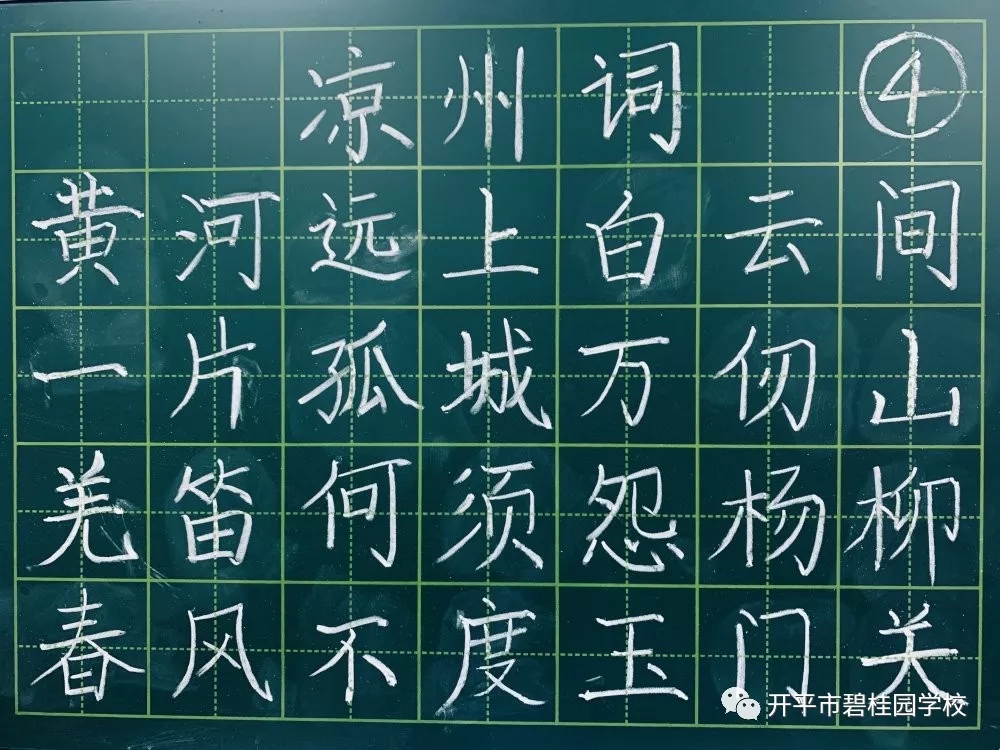 凉州词 ④
黄河远上白云间
一片孤城万仞山
羌笛何须怨杨柳
春风不度玉门关
开平市碧桂园学校